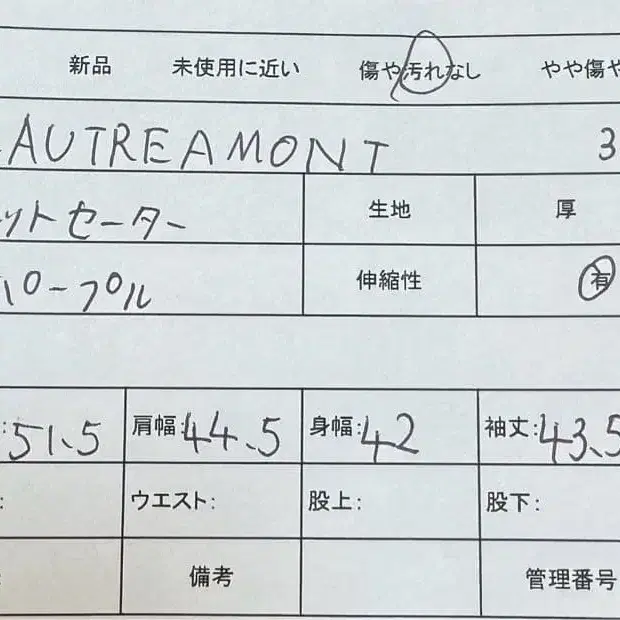 新品 未使用に近い 傷や汚れなし やや傷や
AUTREAMONT 3
ットセーター 生地 厚
パープル 伸縮性 有
:51.5 肩幅:44.5 身幅:42 袖丈:43.5
: ウエスト: 股上: 股下:
: 備考 管理番号